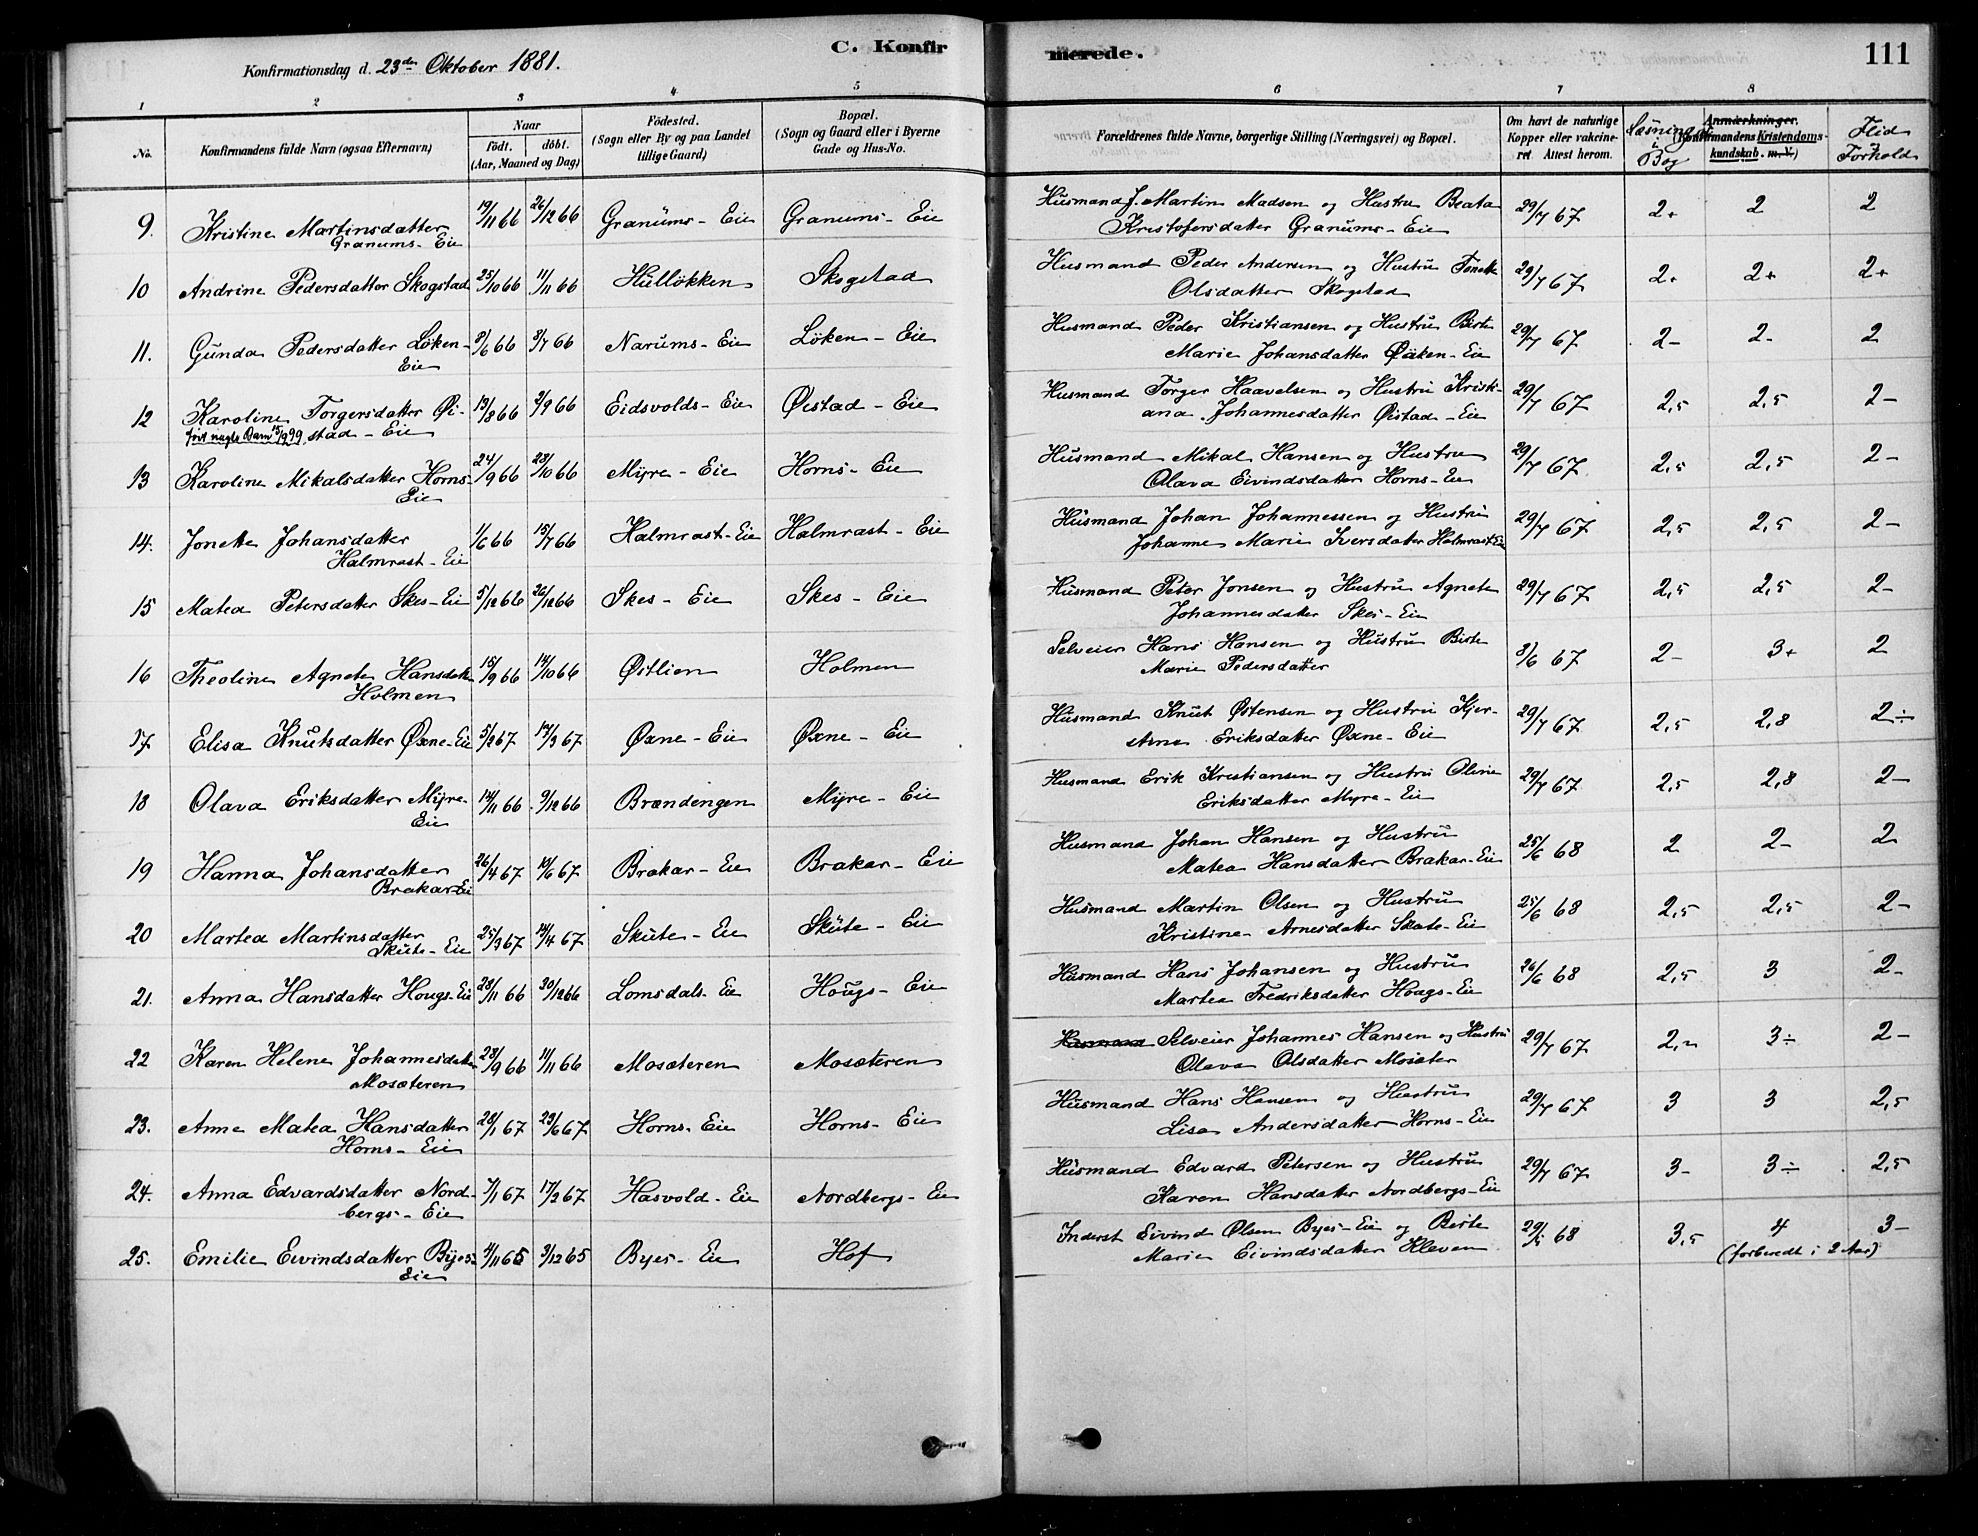 C. Konfirmerede.
111
Konfirmationsdag d. 23de Oktober 1881.
1 2 3 4 5 6 7 8
No.
Konfirmandens fulde Navn (ogsaa Efternavn)
Naar
födt. döbt.
(Aar, Maaned og Dag)
Födested.
(Sogn eller By og paa Landet
tillige Gaard)
Bopæl.
(Sogn og Gaard eller i Byerne
Gade og Hus-No.
Forældrenes fulde Navne, borgerlige Stilling (Næringsvei) og Bopæl.
Om havt de naturlige
Kopper eller vakcine-
ret Attest herom.
Læsning i Bog
Anmærkninger.
(Konfirmandens Kristendoms-
kundskab. m. V.)
Flid
Forhold
9. Kristine Martinsdatter 19/11 66 26/12 66 Granums-Eie Granums-Eie Husmand J. Martin Madsen og Hustru Beata 29/7 67 2+ 2 2
Granums-Eie Kristofersdatter Granums-Eie
10 Andrine Pedersdatter Skogstad 25/10 66 11/11 66 Hulløkken Skogstad Husmand Peder Andersen og Hustru Tonette 29/7 67 2+ 2+ 2+
Olsdatter Skogstad
11. Gunda Pedersdatter Løken- 9/6 66 8/7 66 Narums-Eie Löken-Eie Husmand Peder Kristiansen og Hustru Birte 29/7 67 2- 2- 2
Eie Marie Johansdatter -Eie
12 Karoline Torgersdatter Øi- 13/8 66 2/9 66 Eidsvolds-Eie Øistad-Eie Husmand Torger Haavelsen og Hustru Kristi- 29/7 67 2,5 2,5 2-
Barn 15/9 99 stad-Eie ana Johannesdatter Øistad-Eie
13 Karoline Mikalsdatter Horns- 24/9 66 28/10 66 Myre-Eie Horns-Eie Husmand Mikal Hansen og Hustru 29/7 67 2,5 2,5 2-
Eie Olava Eivindsdatter Horns-Eie
14. Jonette Johansdatter 1/6 66 15/7 66 Halmrast-Eie Halmrast-Eie Husmand Johan Johannessen og Hustru 29/7 67 2,5 2,5 2-
Halmrast-Eie Johanne Marie Iversdatter Halmrast-Eie
15 Matea Petersdatter Skes-Eie 5/12 66 26/12 66 Skes-Eie Skes-Eie Husmand Peter Jonsen og Hustru Agnete 29/7 67 2,5 2,5 2-
Johannesdatter Skes-Eie
16 Theoline Agnete Hansdatter 15/9 66 14/10 66 Østlien Holmen Selveier Hans Hansen og Hustru Birte 3/6 67 2- 3+ 2
Holmen Marie Pedersdatter
17 Elisa Knutsdatter Øxne-Eie 5/2 67 17/3 67 Øxne-Eie Øxne-Eie Husmand Knut Østensen og Hustru Kjer- 29/7 67 2,5 2,8 2÷
stine Eriksdatter Øxne-Eie
18 Olava Eriksdatter Myre- 14/11 66 9/12 66 Brændengen Myre-Eie Husmand Erik Kristiansen og Hustru Oline 29/7 67 2,5 2,8 2-
Eie Eriksdatter Myre-Eie
19 Hanna Johansdatter 26/4 67 10/6 67 Brakar-Eie Brakar-Eie Husmand Johan Hansen og Hustru 25/6 68 2 2- 2
Brakar-Eie Matea Hansdatter Brakar-Eie
20 Martea Martinsdatter 25/3 67 14/4 67 Skute-Eie Skute-Eie Husmand Martin Olsen og Hustru 25/6 68 2,5 2,5 2-
Skute-Eie Kristine Arnesdatter Skute-Eie
21. Anna Hansdatter Hougs-Eie 28/11 66 30/12 66 Lomsdals-Eie Hougs-Eie Husmand Hans Johansen og Hustru 26/6 68 2,5 3 2-
Martea Fredriksdatter Hougs-Eie
22 Karen Helene Johannesdatter 28/9 66 11/11 66 Mosæteren Mosæteren Husmand Selveier Johannes Hansen og Hustru 29/7 67 3÷ 2-
Mosæteren Olava Olsdatter Mosæter
23. Anne Matea Hansdatter 28/1 67 23/6 67 Horns-Eie Horns-Eie Husmand Hans Hansen og Hustru 29/7 67 3 3 2,5
Horns-Eie Lisa Andersdatter Horns-Eie
24. Anna Edvardsdatter Nord- 7/1 67 17/2 67 Hasvold-Eie Nordbergs-Eie Husmand Edvard Petersen og Hustru 29/7 67 3- 3÷ 2,5
bergs-Eie Karen Hansdatter Nordbergs-Eie
25. Emilie Eivindsdatter Byes- 4/11 65 3/12 65 Byes-Eie Hof Inderst Eivind Olsen Byes-Eie og Birte 68 3,5 4 3-
Eie Marie Eivindsdatter Kleven (forberedt i 2 Aar)